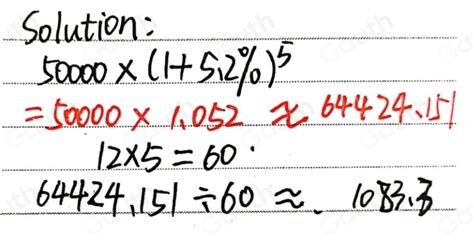 Solution:
50000 × (1+5.2%)^5
= 50000 × 1.052 ≈ 64424.151
12×5 = 60.
64424.151 ÷ 60 ≈. 1083.3